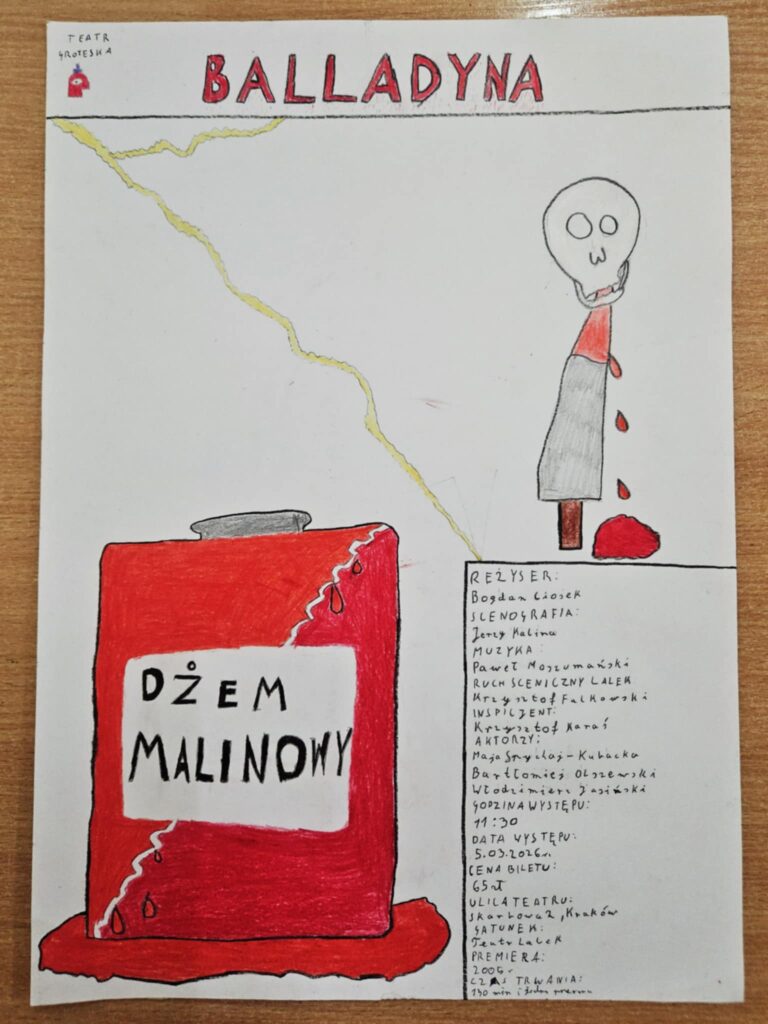 TEATR
GROTESKA
BALLADYNA
DŻEM
MALINOWY
REŻYSER:
Bogdan Ciosek
SCENOGRAFIA:
Jerzy Kalina
MUZYKA:
Paweł Moszumański
RUCH SCENICZNY LALEK
Krzysztof Falkowski
INSPICJENT:
Krzysztof Karaś
AKTORZY:
Maja -Kubacka
Bartłomiej Olszewski
Włodzimierz Jasiński
GODZINA WYSTĘPU:
11:30
DATA WYSTĘPU:
5.03.2026r.
CENA BILETU:
65zł
ULICA TEATRU:
Skarbowa 2, Kraków
GATUNEK:
Teatr Lalek
PREMIERA:
CZAS TRWANIA:
130 min i